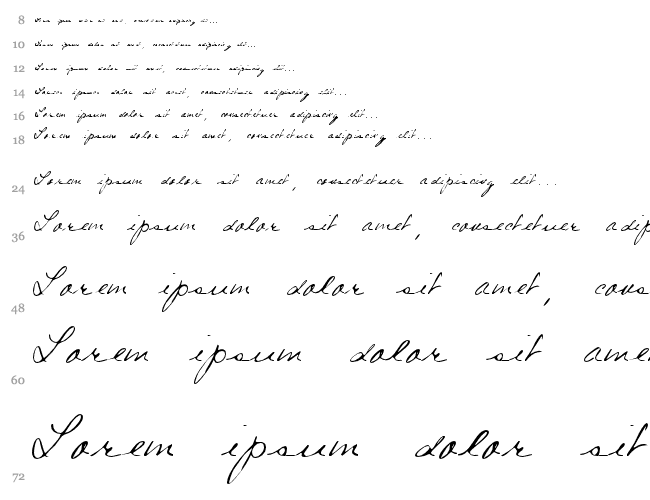 8 Lorem ipsum dolor sit amet, consectetuer adipiscing elit...
10 Lorem ipsum dolor sit amet, consectetuer adipiscing elit...
12 Lorem ipsum dolor sit amet, consectetuer adipiscing elit...
14 Lorem ipsum dolor sit amet, consectetuer adipiscing elit...
16 Lorem ipsum dolor sit amet, consectetuer adipiscing elit...
18 Lorem ipsum dolor sit amet, consectetuer adipiscing elit...
24 Lorem ipsum dolor sit amet, consectetuer adipiscing elit...
36 Lorem ipsum dolor sit amet, consectetuer adip
48 Lorem ipsum dolor sit amet, cons
60 Lorem ipsum dolor sit ame
72 Lorem ipsum dolor sit